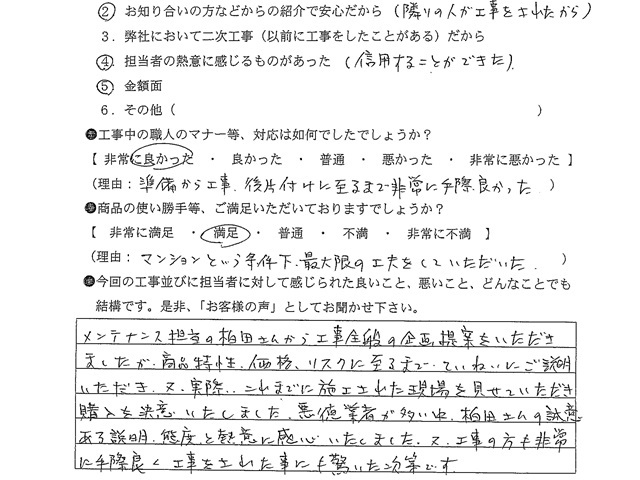 ② お知り合いの方などからの紹介で安心だから (隣りの人が工事をされたから)
3．弊社において二次工事（以前に工事をしたことがある）だから
④ 担当者の熱意に感じるものがあった (信用することができた)
⑤ 金額面
6．その他（ ）
●工事中の職人のマナー等、対応は如何でしたでしょうか？
【 非常に良かった ・ 良かった ・ 普通 ・ 悪かった ・ 非常に悪かった 】
(理由：準備から工事、後片付けに至るまで非常に手際良かった。 )
●商品の使い勝手等、ご満足いただいておりますでしょうか？
【 非常に満足 ・ 満足 ・ 普通 ・ 不満 ・ 非常に不満 】
(理由：マンションという条件下、最大限の工夫をしていただいた。 )
●今回の工事並びに担当者に対して感じられた良いこと、悪いこと、どんなことでも
結構です。是非、「お客様の声」としてお聞かせ下さい。
メンテナンス担当の柏田さんから工事全般の企画、提案をいただき
ましたが、商品特性、価格、リスクに至るまで、ていねいにご説明
いただき、又、実際、これまでに施工された現場を見せていただき
購入を決意いたしました。悪徳業者が多い中、柏田さんの誠意
ある説明、態度と熱意に感心いたしました。又、工事の方も非常
に手際良く工事をされた事にも驚いた次第です。